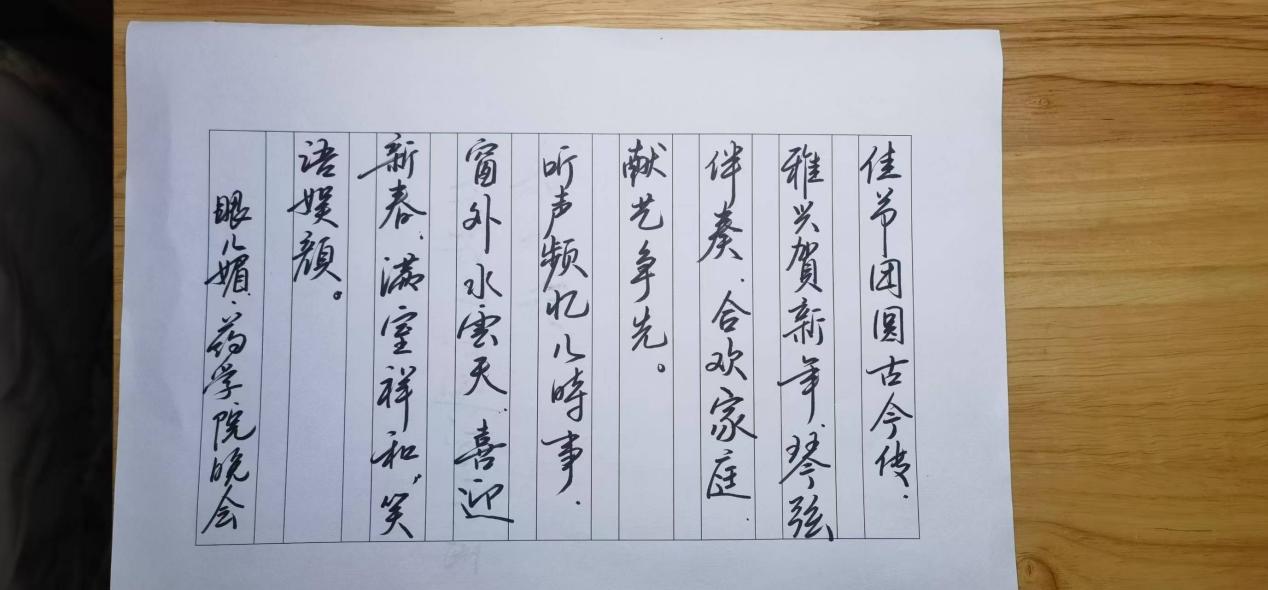 佳节团圆古今传.
雅兴贺新年.琴弦
伴奏.合欢家庭.
献艺争先。
听声频忆儿時事.
窗外水雲天.喜迎
新春.满室祥和.笑
语娱颜。
眼儿媚.药学院晚会